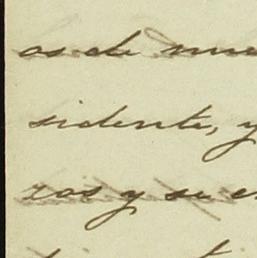 os de mu
sidente, y
ros y su e